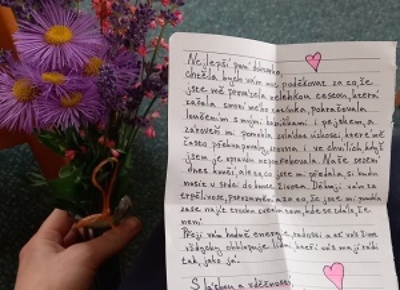 Nejlepší paní doktorko,
chtěla bych vám moc poděkovat za to, že
jste mě provázela nelehkou cestou, která
začala smrtí mého tatínka, pokračovala
loučením s mými babičkami i pejskem, a
zároveň mi pomohla zvládat úzkosti, které mě
často překvapovaly, zrovna i ve chvílích, kdy
jsem je opravdu nepotřebovala. Naše sezení
dnes končí, ale to, co jste mi předala, si budu
nosit v srdci do konce života. Děkuji vám za
trpělivost, porozumění a za to, že jste mi pomohla
zase najít trochu světla tam, kde se zdálo, že
není.
Přeji vám hodně energie, radosti a ať vás život
vždycky obklopuje lidmi, kteří vás mají rádi
tak, jako já.
S láskou a vděčností,